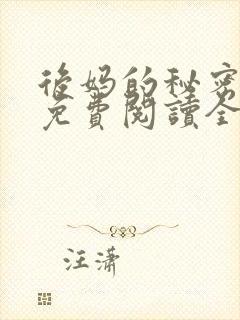 後妈的秘密
免費閱讀全
汪潇